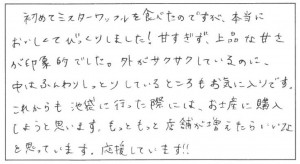 初めてミスターワッフルを食べたのですが、本当に
おいしくてびっくりしました！甘すぎず、上品な甘さ
が印象的でした。外がサクサクしているのに、
中はふんわりしっとりしているところもお気に入りです。
これからも池袋に行った際には、お土産に購入
しようと思います。もっともっと店舗が増えたらいいな
と思っています。応援しています!!